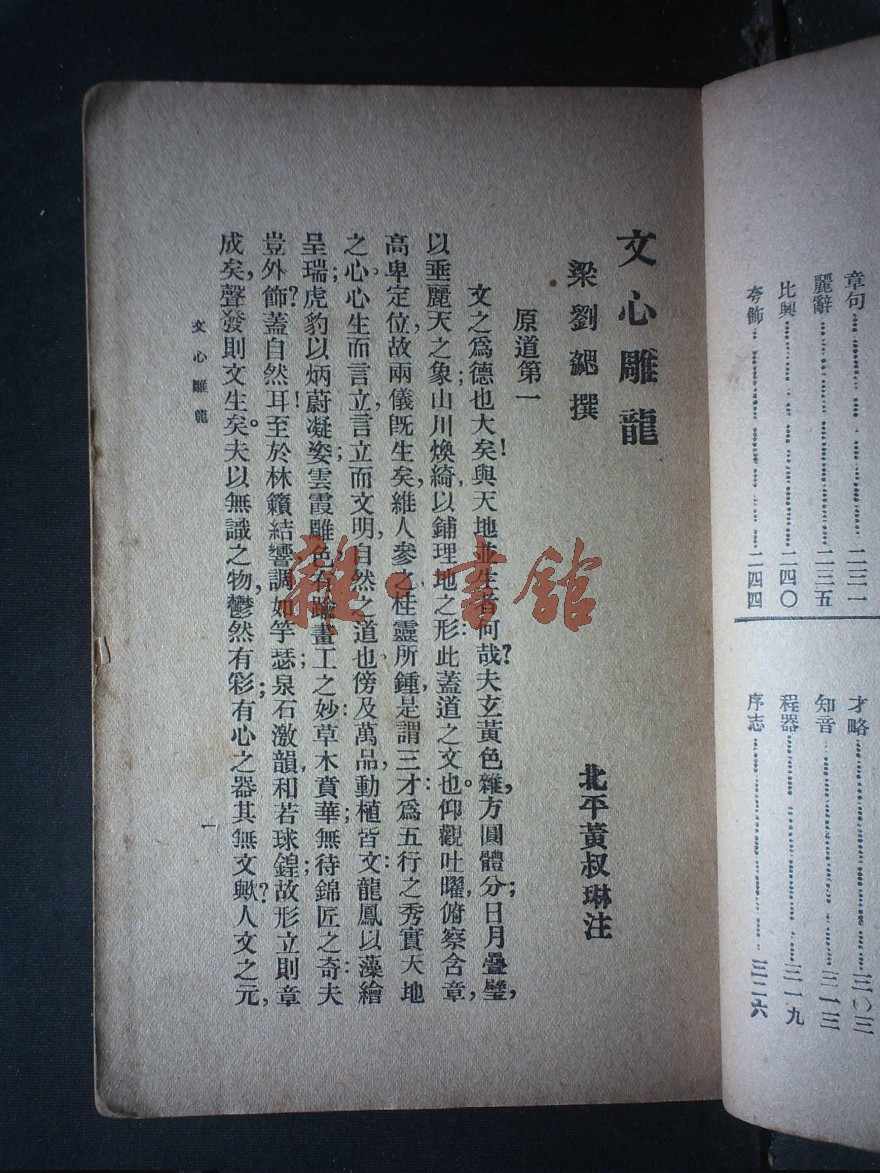 章句……二三一
麗辭……二三五
比興……二四〇
夸飾……二四四
才略……三〇三
知音……三一三
程器……三一九
序志……三二六
文心雕龍
梁劉勰撰
北平黃叔琳注
原道第一
文之爲德也大矣！與天地並生者何哉？夫玄黃色雜，方圓體分；日月疊璧，
以垂麗天之象；山川煥綺，以鋪理地之形：此蓋道之文也。仰觀吐曜，俯察含章，
高卑定位，故兩儀旣生矣，維人參之，性靈所鍾，是謂三才：爲五行之秀，實天地
之心。心生而言立，言立而文明，自然之道也。傍及萬品，動植皆文：龍鳳以藻繪
呈瑞；虎豹以炳蔚凝姿；雲霞雕色，有踰畫工之妙：草木賁華，無待錦匠之奇：夫
豈外飾？蓋自然耳！至於林籟結響，調如竽瑟；泉石激韻，和若球鍠；故形立則章
成矣，聲發則文生矣。夫以無識之物，鬱然有彩；有心之器，其無文歟？人文之元，
文心雕龍
一
雜·書館